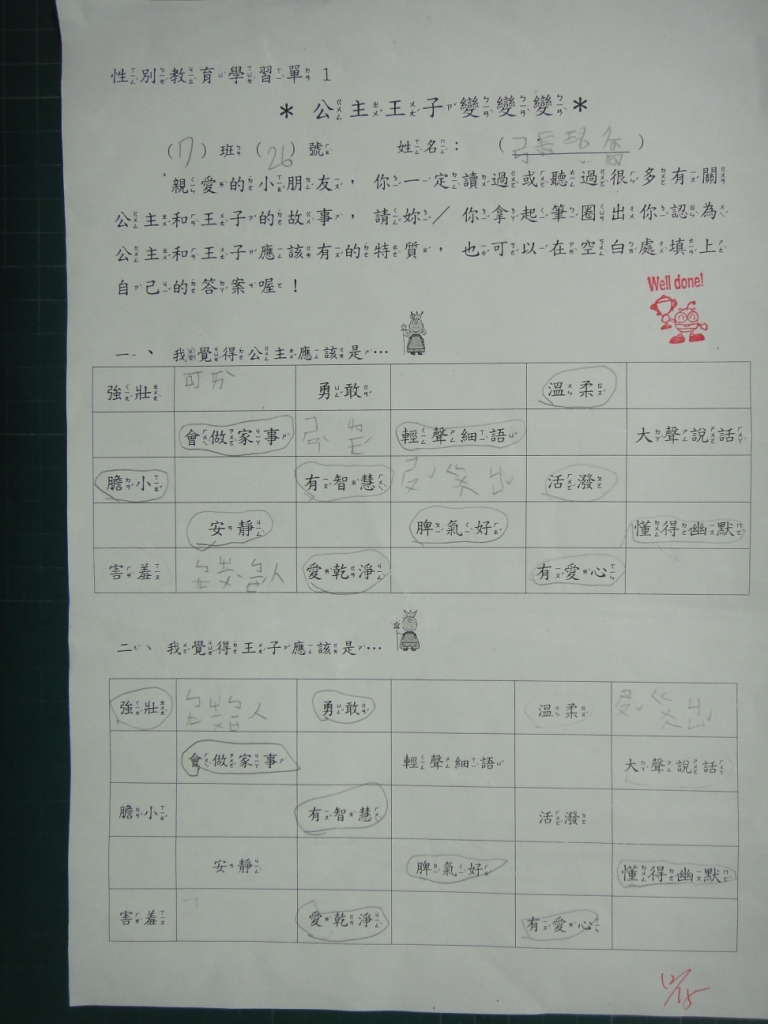 性別教育學習單 1
* 公主王子變變變 *
(7) 班 (26) 號 姓名：( )
親愛的小朋友，你一定讀過或聽過很多有關
公主和王子的故事，請妳／你拿起筆圈出你認為
公主和王子應該有的特質，也可以在空白處填上
自己的答案喔！
Well done!
一、我覺得公主應該是…
強壯 勇敢 溫柔
會做家事 輕聲細語 大聲說話
膽小 有智慧 活潑
安靜 脾氣好 懂得幽默
害羞 愛乾淨 有愛心
二、我覺得王子應該是…
強壯 勇敢 溫柔
會做家事 輕聲細語 大聲說話
膽小 有智慧 活潑
安靜 脾氣好 懂得幽默
害羞 愛乾淨 有愛心
12/15